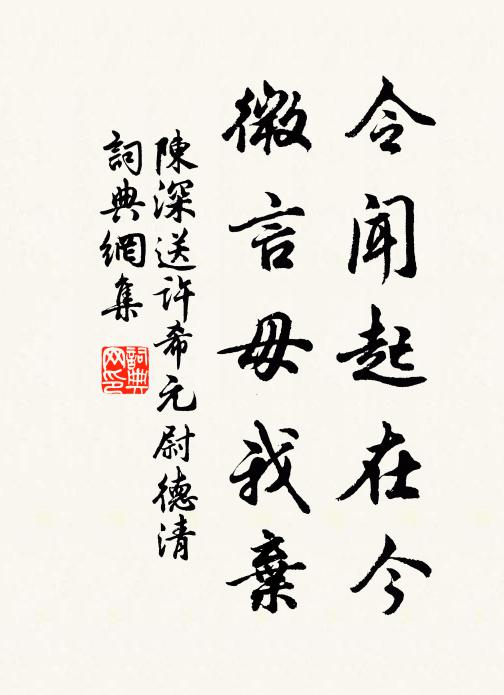 令聞起在今
微言毋我棄
陳深送許希元尉德清
詞典網集
詞典網印